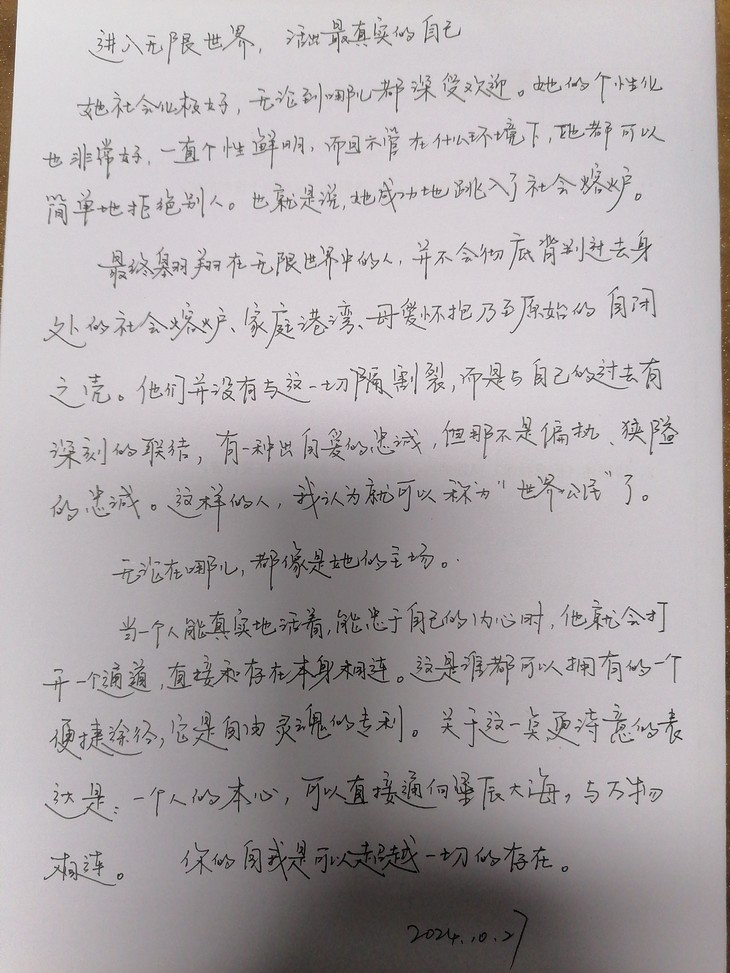 进入无限世界，活出最真实的自己
她社会化极好，无论到哪儿都深受欢迎。她的个性化
也非常好，一直个性鲜明，而且不管在什么环境下，她都可以
简单地拒绝别人。也就是说，她成功地跳入了社会熔炉。
最终翱翔在无限世界中的人，并不会彻底背叛过去身
处的社会熔炉、家庭港湾、母爱怀抱乃至原始的自闭
之壳。他们并没有与这一切隔离割裂，而是与自己的过去有
深刻的联结，有一种出自爱的忠诚，但那不是偏执、狭隘
的忠诚。这样的人，我认为就可以称为“世界公民”了。
无论在哪儿，都像是她的主场。
当一个人能真实地活着，能忠于自己的内心时，他就会打
开一个通道，直接和存在本身相连。这是谁都可以拥有的一个
便捷途径，它是自由灵魂的专利。关于这一点更诗意的表
达是：一个人的本心，可以直接通向星辰大海，与万物
相连。 你的自我是可以超越一切的存在。
2024.10.27